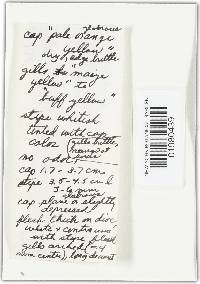 glabrous
cap "pale orange
yellow"
dry, edge brittle
gills "maize
yellow" to
"buff yellow"
stipe whitish
tinted with cap
color (gills brittle,
no odor
cap 1.7 - 3.7 cm
stipe 3.5 - 4.5 cm l
3-6 mm
glabrous
cap plane or slightly
depressed
flesh thick on disc,
white & continuous
with stipe flesh
gills arched (~4
mm center), long decurrent
01080439